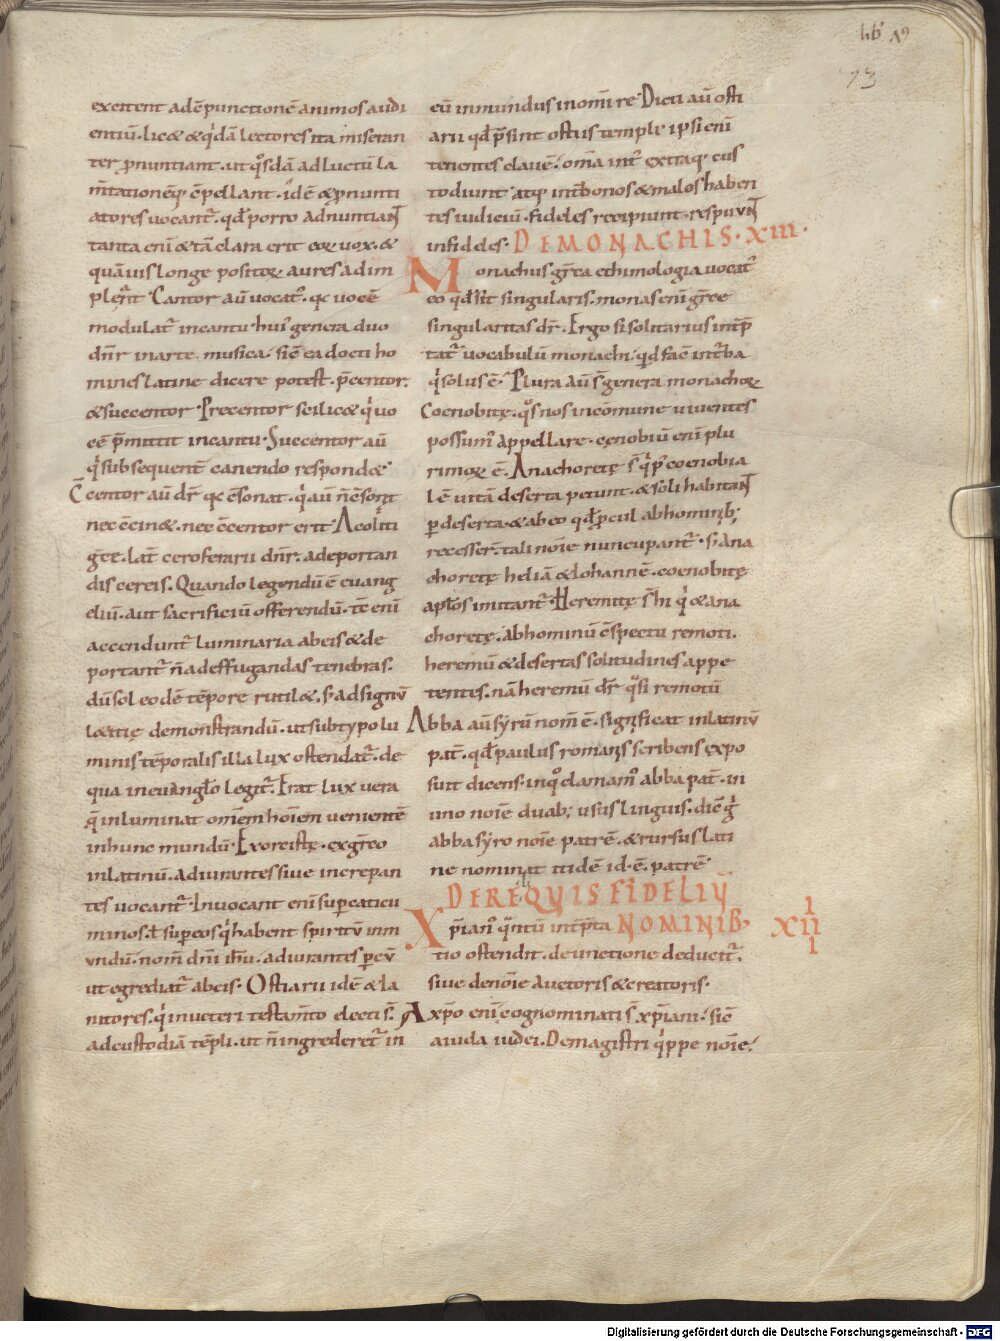 lib' 19
73
excitent adc̄punctionē animos audi
entiū. licæ &q'dā lectores ita miseran
ter ꝓnuntiant. ut q°sdā adluctū la
m̄tationēq; c̄pellant. idē &ꝓnunti
atores vocant᷑. qd̄ porro adnuntiant
tanta eni &tā clara erit eoꝝ vox. &
quāuis longe positoꝝ aures adim
pleat Cantor aū vocat᷑. qa vocē
modulat᷑ incantu. hui' genera duo
dn̄r inarte musica. sic̄ ea docti ho
mines latine dicere potest. p̄centor.
&succentor. Precentor scilicæ q'uo
cē p̄mittit incantu. Succentor aū
q'subsequent̄ canendo respondæ
C̄centor aū dr̄ qa c̄sonat. q'aū n̄c̄sont
nec c̄cinæ. nec c̄centor erit Acoliti
gce. lat̄ ceroferarii dn̄r. adeportan
dis cereis. Quando legendū ē euang
eliū. aut sacrificiū offerendū. tc̄ eni
accendunt᷑ luminaria abeis &de
portant᷑ n̄ adeffugandas tenebras.
dū sol eodē tēpore rutilæ. s; adsignū
lætitię demonstrandū. ut subtypo lu
minis tēporalis illa lux ostendat᷑. de
qua ineuanglo legit᷑. Erat lux uera
q̄ inluminat om̄em hoiem venientē
inhunc mundū. Exorcistę. exgreco
inlatinū. adiurantes siue increpan
tes vocant᷑. Invocant eni super caticu
minos. ł super eos q'habent spiritū inm
undū. nom̄ dn̄i ihu. adiurantes ꝑ eū
ut egrediat᷑ abeis. Ostiarii idē & Ia
nitores. q' inueteri testam̄to electi s̄.
adcustodiā tēpli. ut n̄ ingrederet᷑ in
eū inmundus inom̄i re. Dicti aū osti
arii qd̄ p̄sint ostiis templi. ipsi eni
tenentes clauē. om̄a int᷑ extraq; cus
todiunt. atq; int̄ bonos &malos haben
tes iudiciū. fideles recipiunt. respuunt
infideles. DE MONACHIS. XIII.
Monachus greca ethimologia uocat᷑
eo qd̄ sit singularis. monas eni grece
singularitas dr̄. Ergo si solitarius int̄p̄
tat᷑ vocabulū monachi. qd facit int̄ba
q'solus ē. Plura aū s̄ genera monachoꝝ
Coenobitę. q°s nos incomune uiuentes
possum' appellare. cenobiū eni plu
rimoꝝ ē. Anachoretę s̄ q'p' coenobia
lē uitā deserta petunt. &soli habitant
ꝑ deserta. &abeo qd̄ ꝓcul abhominib;
recesser̄. tali noie nuncupant᷑. s; Ana
choretę heliā &Iohannē. coenobitę
aplos imitant᷑. Heremitę s̄ hi q' &ana
choretę. abhominū c̄spectu remoti.
heremū &desertas solitudines appe
tentes. nā heremū dr̄ q°si remotū
Abba aū syrū nom̄ ē. significat inlatinū
pat̄. qd̄ paulus romanis scribens expo
suit dicens. inq° clamam' abba pat̄. in
uno noie duab; usus linguis. dic̄ g'
abba syro noie patrē. &rursus lati
ne nominat itidē id. ē. patrē
DE REQUIS FIDELIU
Xp̄ian' q̄ntū int̄p̄ta NOMINIB. XIIII
tio ostendit. deunctione deducit᷑.
siue denoie auctoris &creatoris.
A xp̄o eni cognominati s̄ xp̄iani. sic̄
aiuda iudei. Demagistri q'ppe noie.
Digitalisierung gefördert durch die Deutsche Forschungsgemeinschaft - DFG